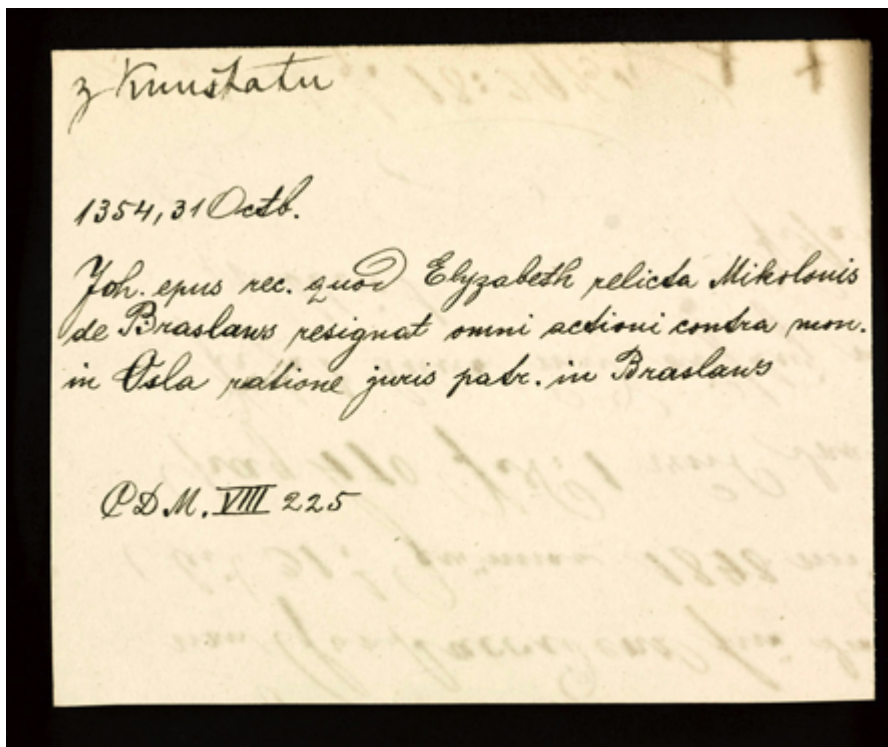 z Kunštatu
1354, 31 Octb.
Joh. epus rec. quod Elyzabeth relicta Mikolonis
de Braslaws resignat omni actioni contra mon.
in Osla ratione juris patr. in Braslaws
C D. M. VIII 225